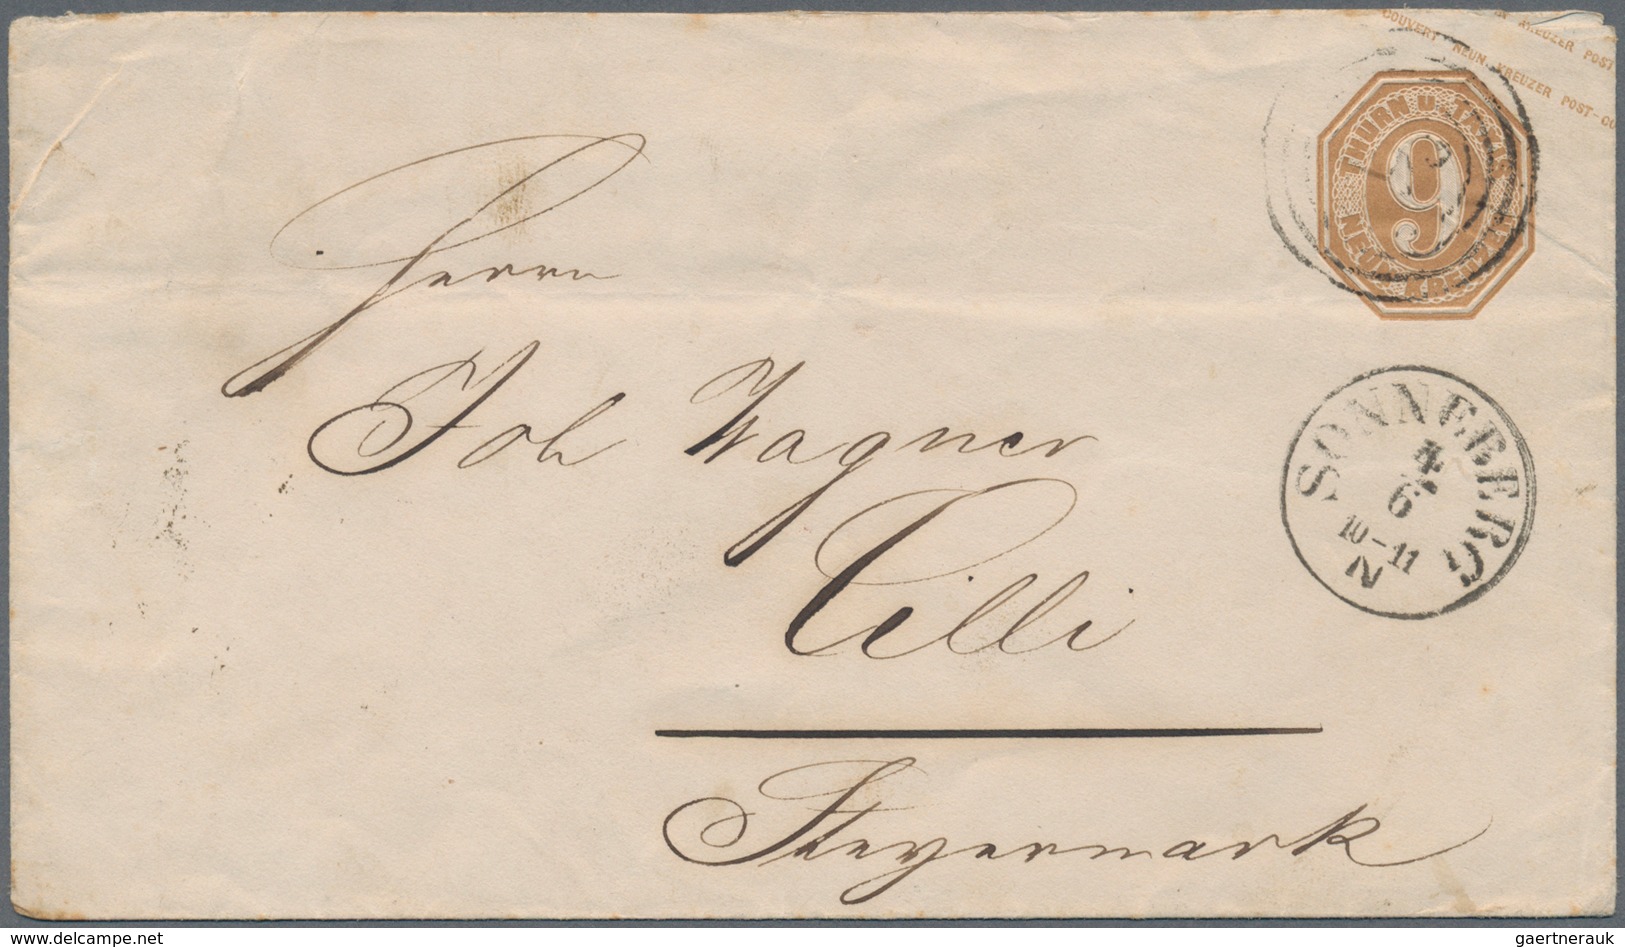 COUVERT NEUN. KREUZER POST-CO
KREUZER POST
THURN U. TAXIS
9
NEUN KREUZER
Herrn
Joh Wagner
Cilli
Steyermark
SONNEBERG
4
6
10-11
N
delcampe.net
gaertnerauk